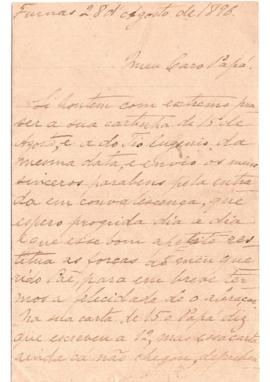 Furnas 28 d'Agosto de 1896.
Meu Caro Papá.
Li hontem com extremo pra
ser a sua cartinha de 15 de
Agosto, e a do Tio Eugenio, da
mesma data, e envio os meus
sinceros parabens pela entra
da em convalescença, que
espero progrida dia a dia
e que esse bom apetite res
titua as forças ao meu que
rido Pae, para em breve ter
mos a felicidade de o
na sua carta de 15 o Papá diz
que escreveu a 12, mas essa carta
ainda cá não chegou,